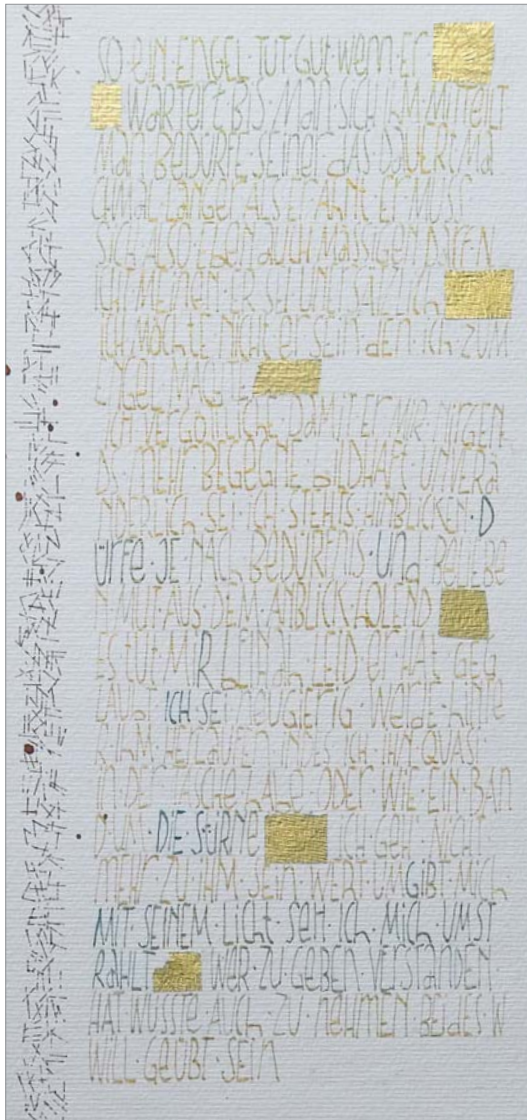 SO·EIN·ENGEL·TUT·GUT·wenn·Er
WARTET·BIS·Man·SICH·IHM·MITTEILT
Man·BEDÜRFE·SEINER·DAS·DAUERT·Ma
CHMAL·LÄNGER·ALS·ER·AHNT·ER·MUSS
SICH·ALSO·EBEN·AUCH·MÄSSIGEN
ICH·MEINEN·ER·SEI
ICH·MÖCHTE·NICHT·er·SEIN·den·ICH·ZUM
ENGEL·MACHTE
ICH·VERGÖTTLICHE·DAMIT·Er·MIR·NIRGEN
DS·MEHR·BEGEGNE·BILDHAFT·UNVERä
NDERLICH·SEI·ICH·STEHTS·ANBLICKEN·D
ürfe·JE·NACH·BEDÜRFNIS·Und·BELIEBE
N·MUT·AUS·DEM·ANBLICK·HOLEND
ES·TUT·MIR·BEINAH·LEID·er·HAT·GEG
LAUBT·ICH·SEI·NEUGIERIG·Werde·HINTe
R·IHM·HERLAUFEN·INDES·ICH·IHN·QUASI
IN·DER·TASCHE·HABE·ODER·WIE·EIN·BAN
D·UM·DIE·STIRNe·ICH·GEH·NICHT
MEHR·ZU·IHM·SEIN·WERT·UMGIBT·MICH
MIT·SEINEM·LICHT·SEH·ICH·MICH·UMST
RAHLT·WER·ZU·GEBEN·VERSTANDEN
HAT·WUSSTE·AUCH·ZU·NEHMEN·BEIDES·W
WILL·GEÜBT·SEIN